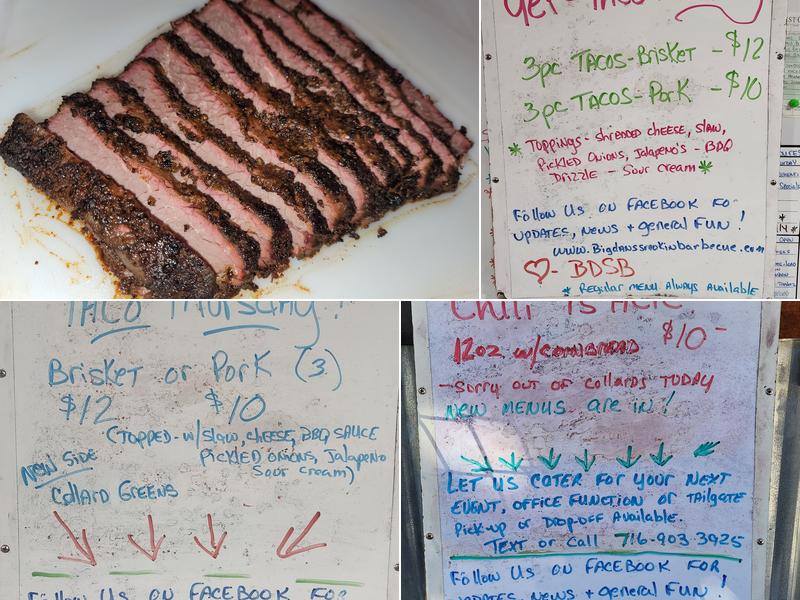 3pc TACOS-BRISKET - $12
3pc TACOS-PORK - $10
* TOPPINGS - SHREDDED CHEESE, SLAW,
PICKLED ONIONS, JALAPENO'S - BBQ
DRIZZLE - SOUR CREAM *
FOLLOW US ON FACEBOOK FO
UPDATES, NEWS + general FUN!
www.Bigdanssmokinbarbecue.com
♡ - BDSB
* REGULAR MENU ALWAYS AVAILABLE
TACO THURSDAY!
BRISKET or PORK (3)
$12 $10
(TOPPED - w/SLAW, CHEESE, BBQ SAUCE
PICKLED ONIONS, JALAPENO
SOUR CREAM)
NEW SIDE
COLLARD GREENS
FOLLOW US ON FACEBOOK FOR
CHILI IS HERE
12oz w/CORNBREAD $10-
-SORRY OUT OF COLLARDS TODAY
NEW MENUS are in!
LET US CATER FOR YOUR NEXT
EVENT, OFFICE FUNCTION OR TAILGATE
PICK-UP OR DROP-OFF AVAILABLE
TEXT or CALL 716-903-3925
FOLLOW US ON FACEBOOK FOR
UPDATES, NEWS + general FUN!